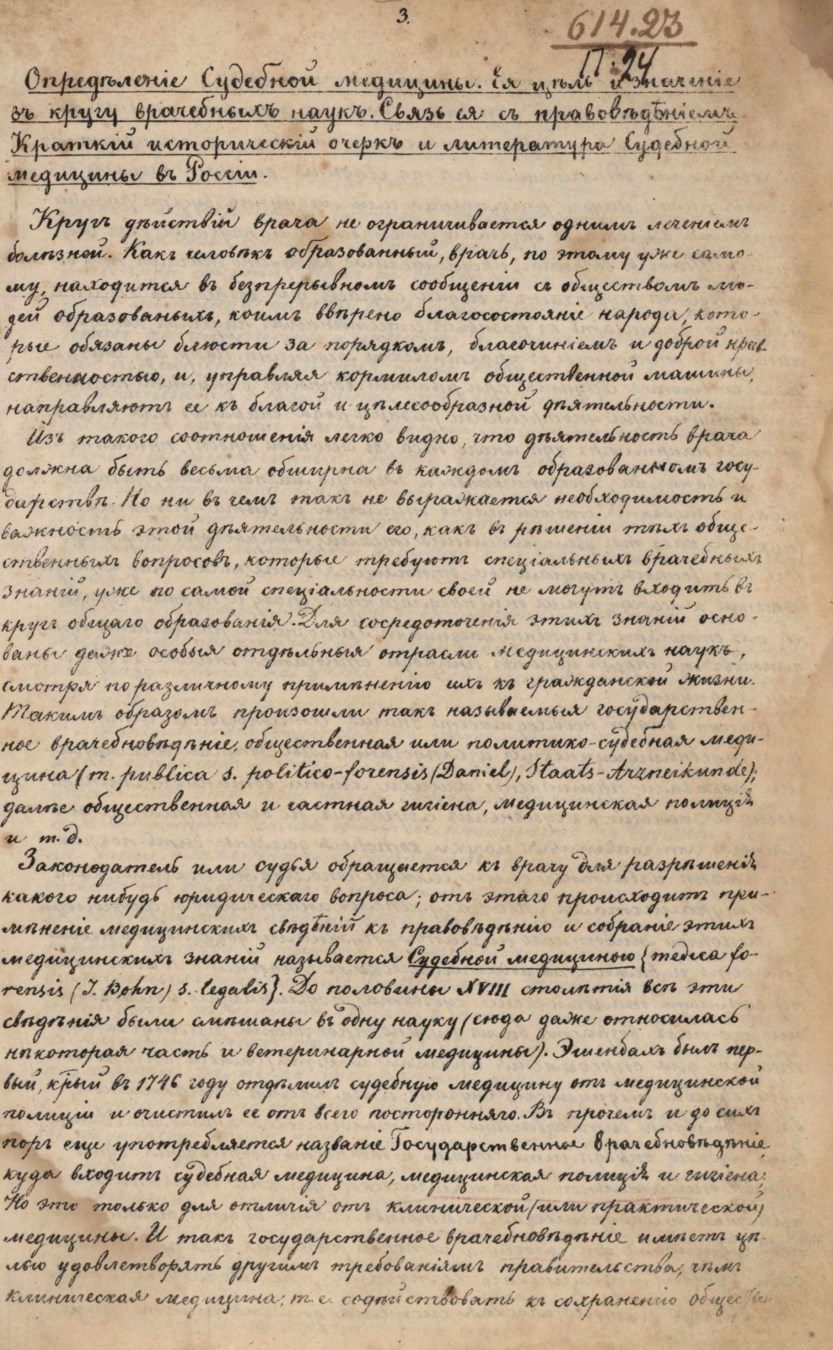 3.
614.23
П 24
Опредѣленіе Судебной медицины. Ея цѣль и значеніе
въ кругу врачебныхъ наукъ. Связь ея съ правовѣдѣніемъ.
Краткій историческій очеркъ и литература Судебной
медицины въ Россіи.
Кругъ дѣйствій врача не ограничивается однимъ леченіемъ
болѣзней. Какъ человѣкъ образованный, врачъ, по этому уже само-
му, находится въ безпрерывномъ сообщеніи съ обществомъ лю-
дей образованыхъ, коимъ ввѣрено благосостояніе народа, кото-
рые обязаны блюсти за порядкомъ, благочиніемъ и доброй нрав-
ственностью, и, управляя кормиломъ общественной машины,
направляютъ ее къ благой и цѣлесообразной дѣятельности.
Изъ такого соотношенія легко видно, что дѣятельность врача
должна быть весьма обширна въ каждомъ образованномъ госу-
дарствѣ. Но ни въ чемъ такъ не выражается необходимость и
важность этой дѣятельности его, какъ въ рѣшеніи тѣхъ обще-
ственныхъ вопросовъ, которые требуютъ спеціальныхъ врачебныхъ
знаній, уже по самой спеціальности своей не могутъ входить въ
кругъ общаго образованія. Для сосредоточенія этихъ знаній осно-
ваны даже особыя отдѣльныя отрасли медицинскихъ наукъ,
смотря по различному примѣненію ихъ къ гражданской жизни.
Такимъ образомъ произошли такъ называемыя государствен-
ное врачебновѣдѣніе, общественная или политико-судебная меди-
цина (m. publica s. politico-forensis (Daniel), Staats-Arzneikunde);
далѣе общественная и частная гигіена, медицинская полиція
и т.д.
Законодатель или судья обращается къ врачу для разрѣшенія
какого нибудь юридическаго вопроса; отъ этаго происходитъ при-
мѣненіе медицинскихъ свѣдѣній къ правовѣдѣнію и собраніе этихъ
медицинскихъ знаній называется Судебной медициною {medica fo-
rensis (J. Bohn) s. legalis}. До половины XVIII столѣтія всѣ эти
свѣдѣнія были смѣшаны въ одну науку (сюда даже относилась
нѣкоторая часть и ветеринарной медицины). Эшенбахъ былъ пер-
вый, кт̅рый въ 1746 году отдѣлилъ судебную медицину отъ медицинской
полиціи и очистилъ ее отъ всего посторонняго. Въ прочемъ и до сихъ
поръ еще употребляется названіе Государственное врачебновѣдѣніе,
куда входитъ судебная медицина, медицинская полиція и гигіена;
Но это только для отличія отъ клинической (или практической)
медицины. И такъ государственное врачебновѣдѣніе имѣетъ цѣ-
лью удовлетворять другимъ требованіямъ правительства, чѣмъ
клиническая медицина; т.е. содѣйствовать къ сохраненію